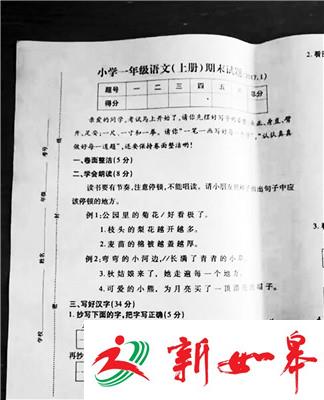 小学一年级语文(上册)期末试题(2017.1)
题号 一 二 三 四 五
得分
亲爱的同学,考试马上开始了,请你先摆好写字的姿势:头正、身直、臂
开、足安;一尺、一寸和一拳。请你“一笔一画写好每一个字”,“认认真真
做好每一道题”,还要保持卷面整洁哟!
一、卷面整洁(5分)
二、学会朗读(8分)
读书要有节奏,注意停顿,不能唱读。请小朋友
出句子中应
该停顿的地方。
例1:公园里的菊花/好看极了。
1.枝头的梨花越开越多。
2.麦苗的棉被越盖越厚。
例2:弯弯的小河边,//长满了青青的小草。
3.秋姑娘来了,她走遍每一个地方。
4.可爱的小熊,为月亮买了一顶漂亮的帽子。
三、写好汉字(34分)
1.抄写下面的字,把字写正确(5分)
再抄
学校
姓名
年级
考号
2.看图
3.
4.
新如皋